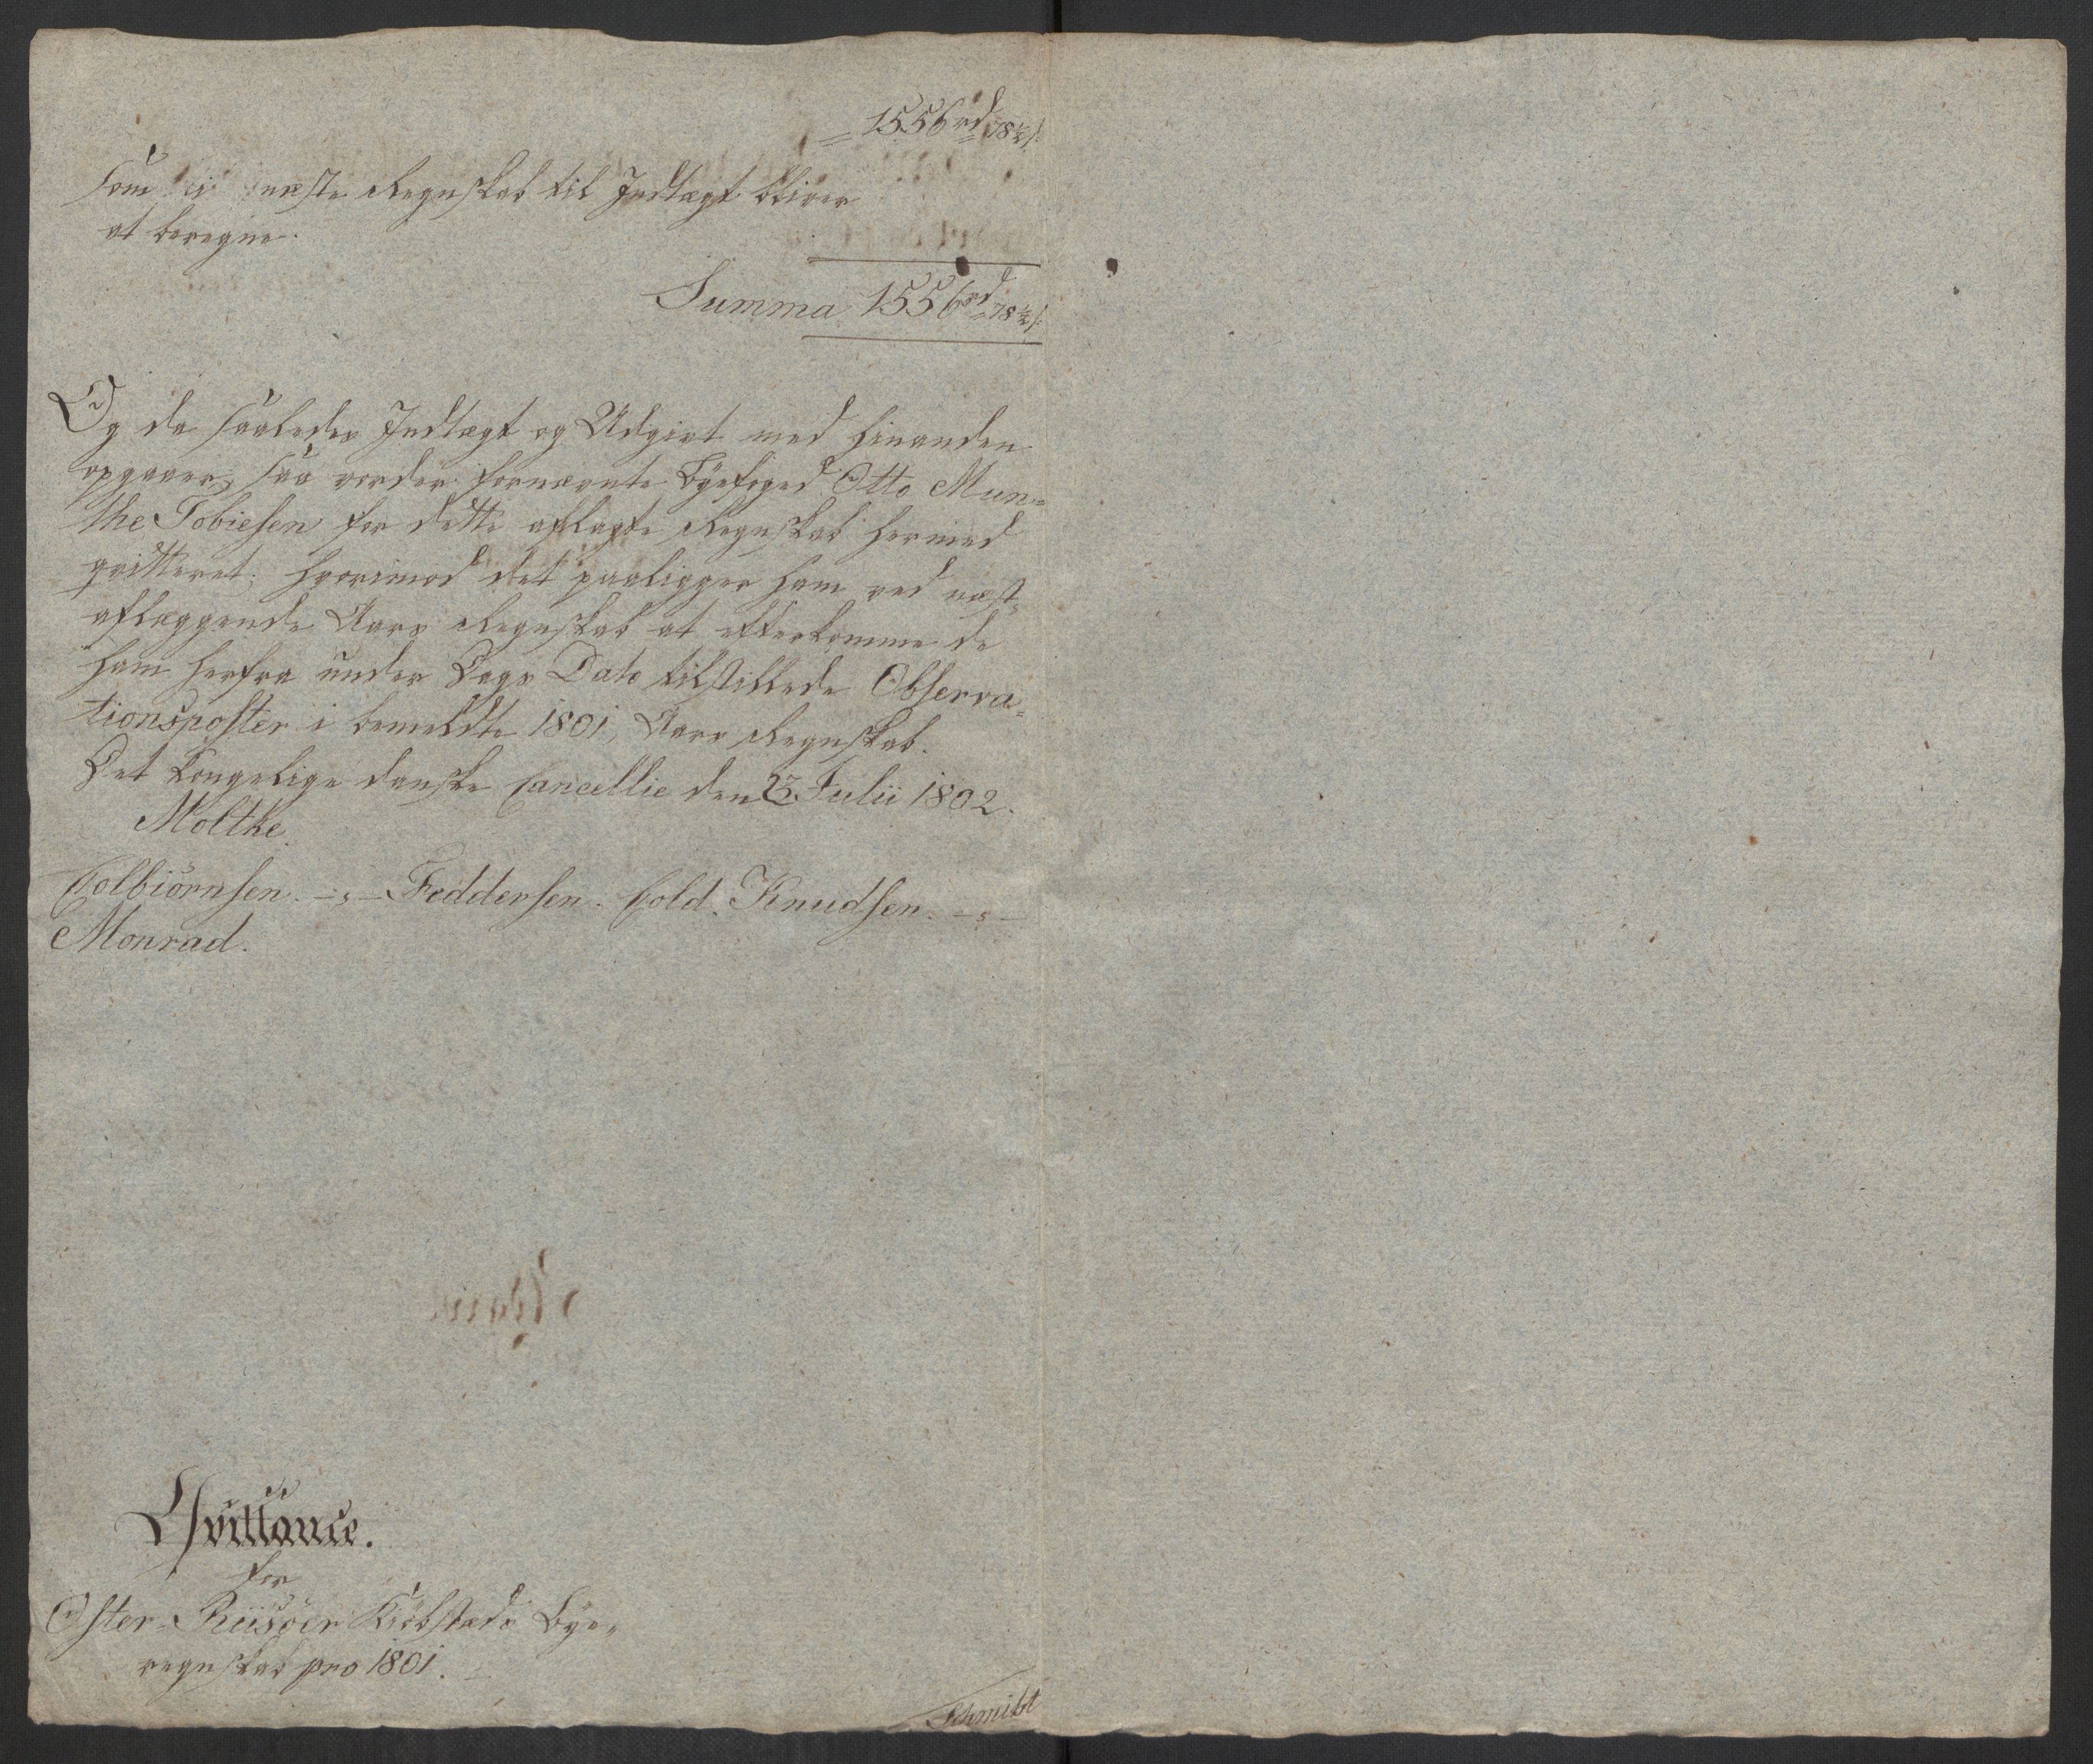 = 1556rd 78½ s:
som i næste Regnskab til Indtægt bliver
at beregne.
Summa 1556rd 78½ s:
Og da saaledes Indtægt og Udgivt med hinanden
opgaaer, saa vorder fornævnte Byefoged Otto Mun=
the Tobiesen for dette aflagte Regnskab hermed
qvitteret; hvorimod det paaligger ham ved næst
aflæggende Aars Regnskab at efterkomme de
ham herfra under Dags Dato tilstillede Observa=
tionsposter i bemeldte 1801 Aars Regnskab.
Det Kongelige danske Cancellie den 23 Julii 1802.
Moltke.
Colbiörnsen. -,- Feddersen. Cold. Knudsen. -,-
Monrad.
Qvittance.
for
Öster-Riisöer Kiöbstæds Bye-
regnskab pro 1801.
Schmidt